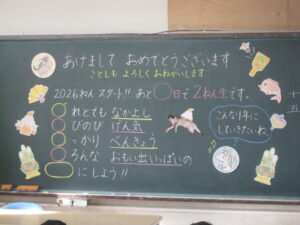 あけまして おめでとうございます
ことしも よろしく おねがいします
2026ねん スタート!! あと○日で 2ねん生です。
○れとでも なかよし
○びのび げん気
○っかり べんきょう
○ろんな おもい出いっぱいの
○にしよう!!
こんな1年に
していきたいね。
十
五